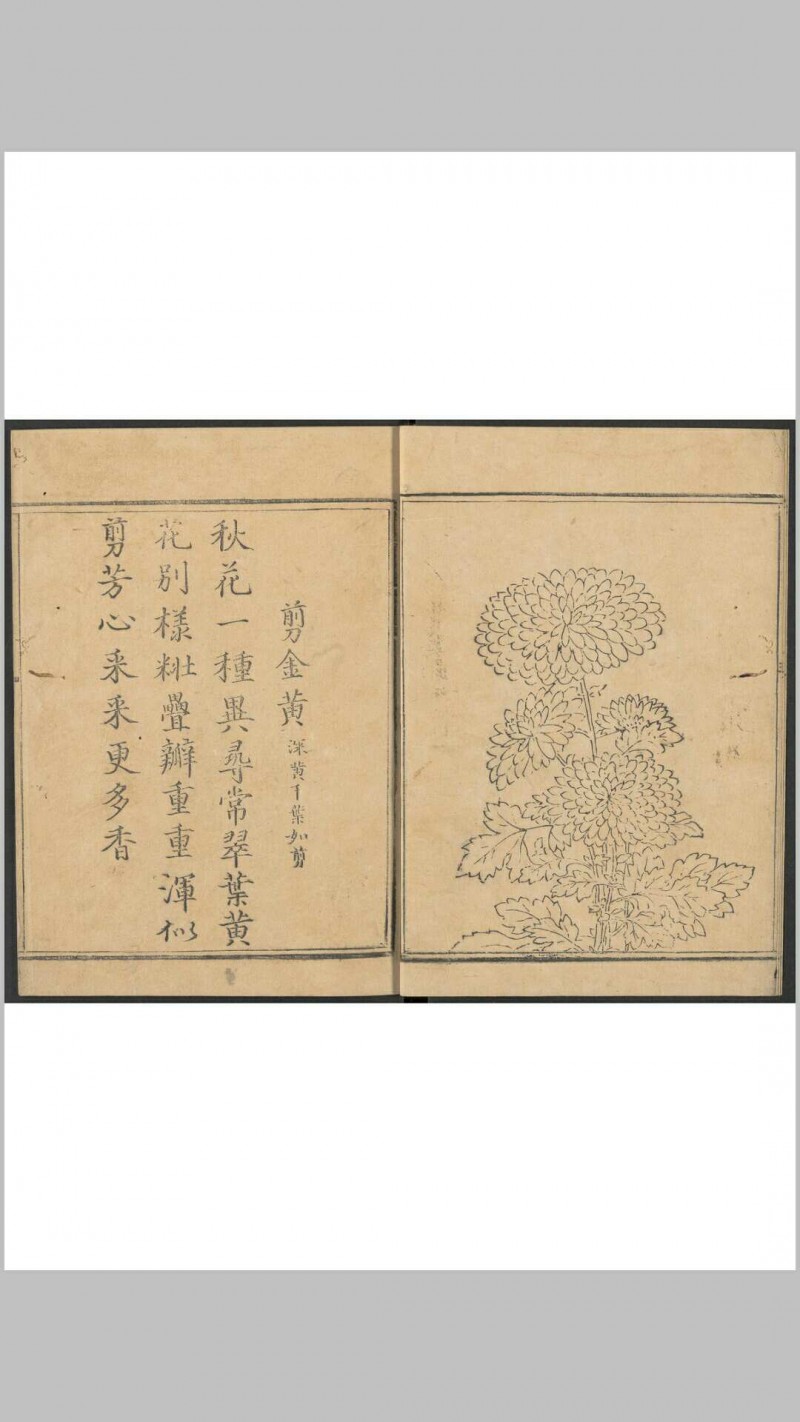 剪金黄深黄千葉如剪
秋花一種異尋常翠葉黄
花別樣粧疊瓣重重渾似
剪芳心釆釆更多香